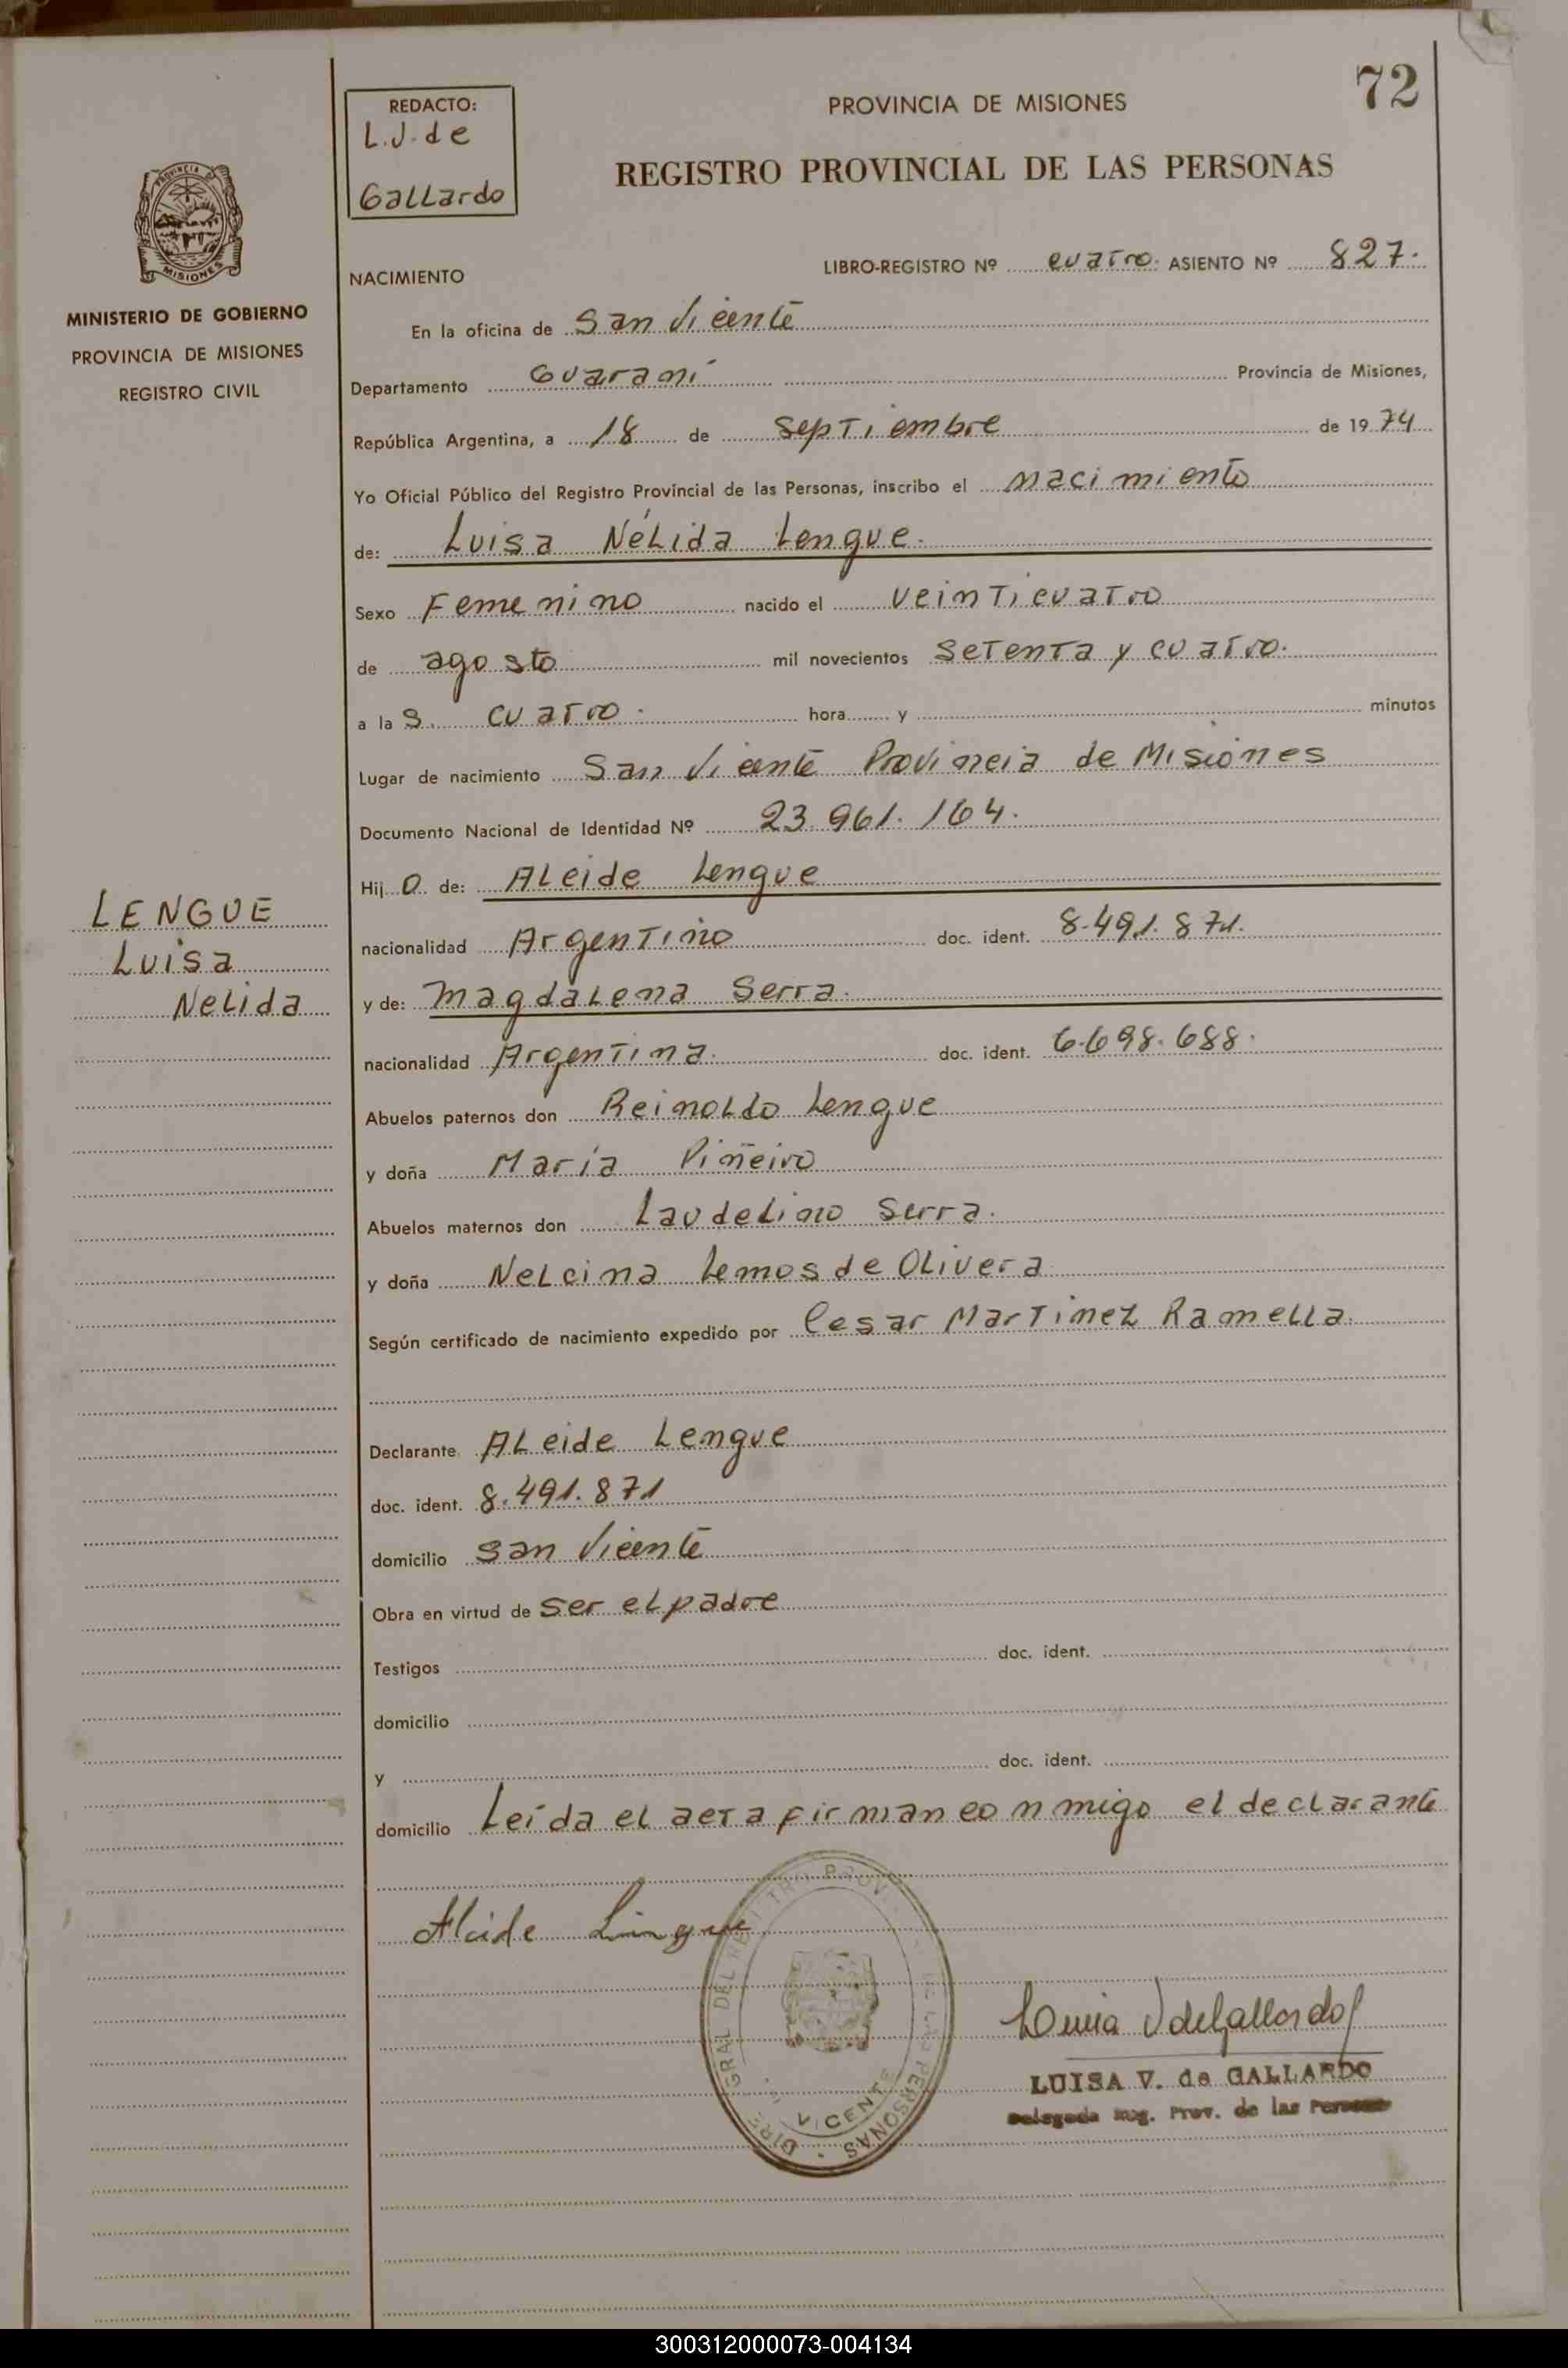 72
REDACTO:
L.J. de
Gallardo
PROVINCIA DE MISIONES
REGISTRO PROVINCIAL DE LAS PERSONAS
MISIONES
MINISTERIO DE GOBIERNO
PROVINCIA DE MISIONES
REGISTRO CIVIL
NACIMIENTO
LIBRO-REGISTRO Nº cuatro. ASIENTO Nº 827.
En la oficina de San Vicente
Departamento Guaraní Provincia de Misiones,
República Argentina, a 18 de septiembre de 1974
Yo Oficial Público del Registro Provincial de las Personas, inscribo el nacimiento
de: Luisa Nélida Lengue.
Sexo Femenino nacido el veinticuatro
de agosto mil novecientos setenta y cuatro.
a la s. cuatro. hora y minutos
Lugar de nacimiento San Vicente Provincia de Misiones
Documento Nacional de Identidad Nº 23.961.164.
Hij o de: Alcide Lengue
nacionalidad Argentino doc. ident. 8.491.871.
y de: Magdalena Serra.
nacionalidad Argentina. doc. ident. 6.698.688.
Abuelos paternos don Reinoldo Lengue
y doña María Piñeiro
Abuelos maternos don Laudelino Serra.
y doña Nelcina Lemos de Olivera
Según certificado de nacimiento expedido por Cesar Martinez Ramella.
Declarante Alcide Lengue
doc. ident. 8.491.871
domicilio San Vicente
Obra en virtud de ser el padre
Testigos doc. ident.
domicilio
y doc. ident.
domicilio Leída el acta firman conmigo el declarante
LENGUE
Luisa
Nelida
Alcide Lengue
LUISA V. de GALLARDO
Delegada Reg. Prov. de las Personas
300312000073-004134